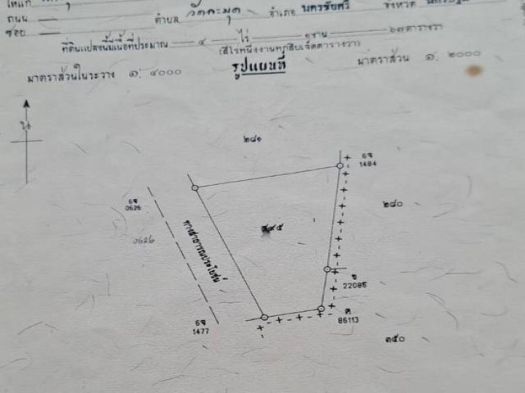 ถนน
ซอย
ตำบล วัดละมุด อำเภอ นครชัยศรี จังหวัด
ที่ดินแปลงนี้มีเนื้อที่ประมาณ ๔ ไร่ งาน ตารางวา
(สี่ไร่หนึ่งงานหกสิบเจ็ดตารางวา)
มาตราส่วนในระวาง ๑: ๔๐๐๐ รูปแผนที่ มาตราส่วน ๑: ๒๐๐๐
น
๒๘๑
6จ
1484
6จ
0626
0626
๒๘๐
ทางสาธารณประโยชน์
ข
22085
ค
86113
6จ
1477
๑๕๐